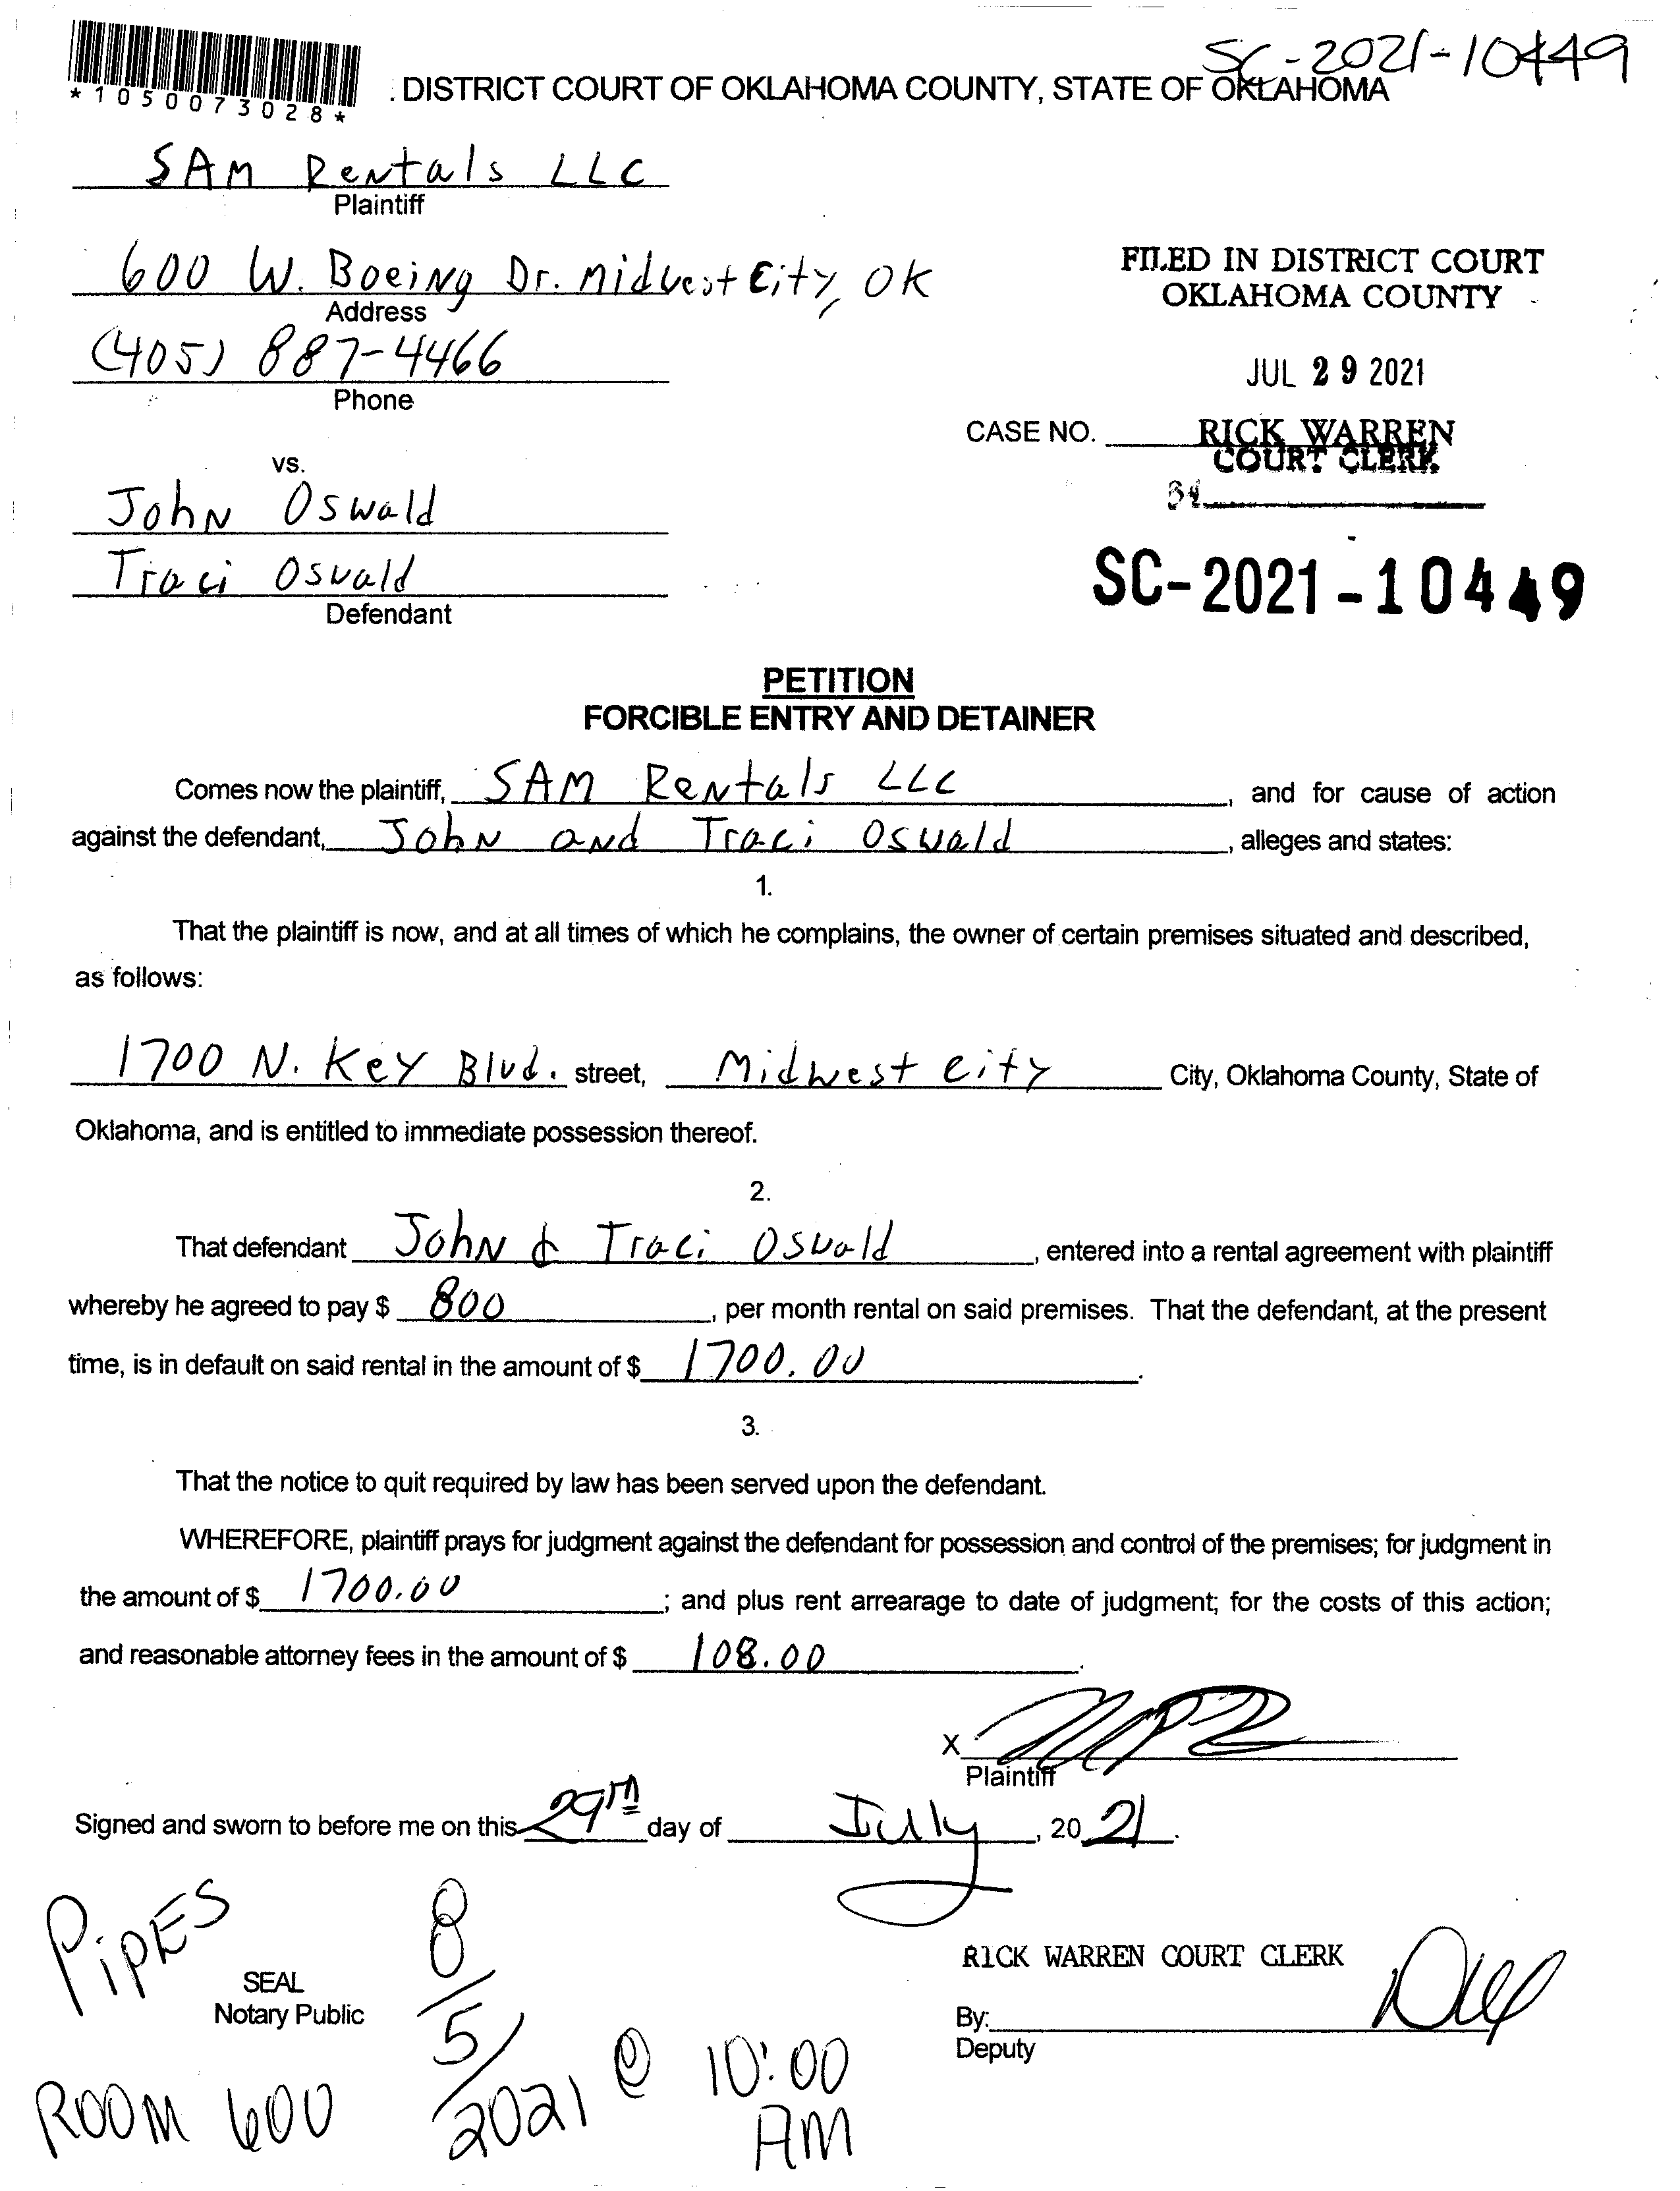 SC-2021-10449
*1050073028*
: DISTRICT COURT OF OKLAHOMA COUNTY, STATE OF OKLAHOMA
SAM Rentals LLC
Plaintiff
600 W. Boeing Dr. Midwest City, OK
Address
(405) 887-4466
Phone
FILED IN DISTRICT COURT
OKLAHOMA COUNTY
JUL 29 2021
CASE NO. RICK WARREN
COURT CLERK
vs.
John Oswald
34
Traci Oswald
Defendant
SC-2021-10449
PETITION
FORCIBLE ENTRY AND DETAINER
Comes now the plaintiff, SAM Rentals LLC, and for cause of action
against the defendant, John and Traci Oswald, alleges and states:
1.
That the plaintiff is now, and at all times of which he complains, the owner of certain premises situated and described,
as follows:
1700 N. Key Blvd. street, Midwest City City, Oklahoma County, State of
Oklahoma, and is entitled to immediate possession thereof.
2.
That defendant John & Traci Oswald, entered into a rental agreement with plaintiff
whereby he agreed to pay $ 800, per month rental on said premises. That the defendant, at the present
time, is in default on said rental in the amount of $ 1700.00.
3.
That the notice to quit required by law has been served upon the defendant.
WHEREFORE, plaintiff prays for judgment against the defendant for possession and control of the premises; for judgment in
the amount of $ 1700.00; and plus rent arrearage to date of judgment; for the costs of this action;
and reasonable attorney fees in the amount of $ 108.00.
X
Plaintiff
Signed and sworn to before me on this 29th day of July, 2021.
PIPES
SEAL
Notary Public
RICK WARREN COURT CLERK
By:
Deputy
ROOM 600 8/5/2021 @ 10:00 AM